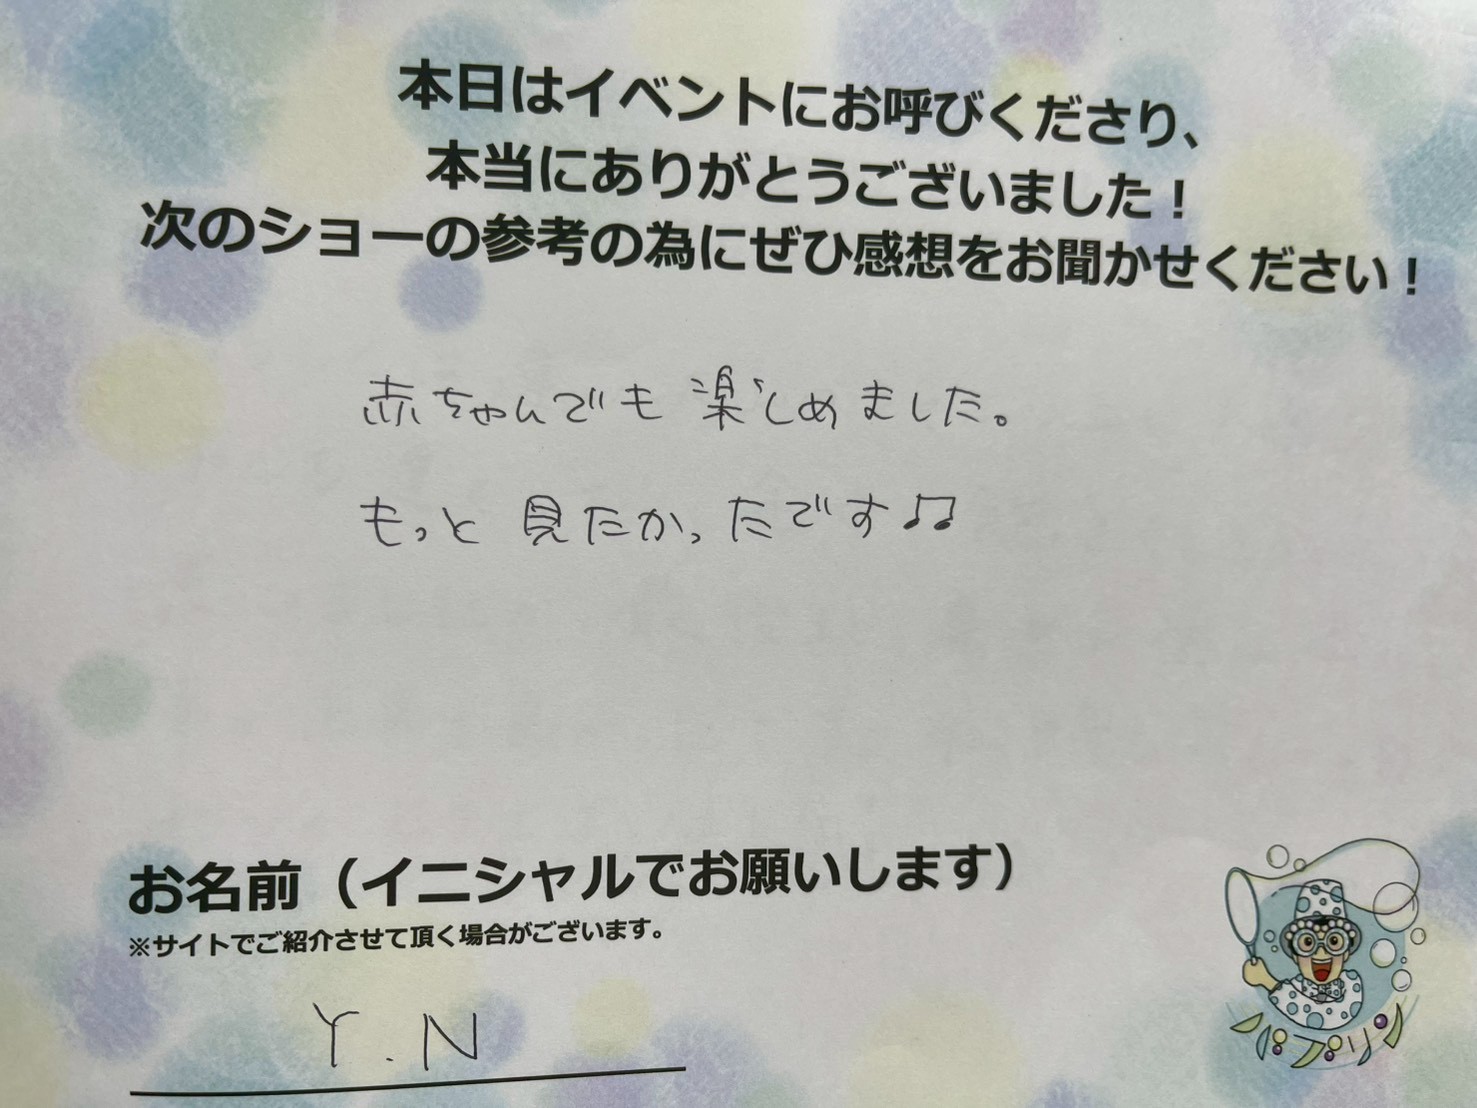 本日はイベントにお呼びくださり、
本当にありがとうございました！
次のショーの参考の為にぜひ感想をお聞かせください！
赤ちゃんでも楽しめました。
もっと見たかったです♫
お名前（イニシャルでお願いします）
※サイトでご紹介させて頂く場合がございます。
Y.N